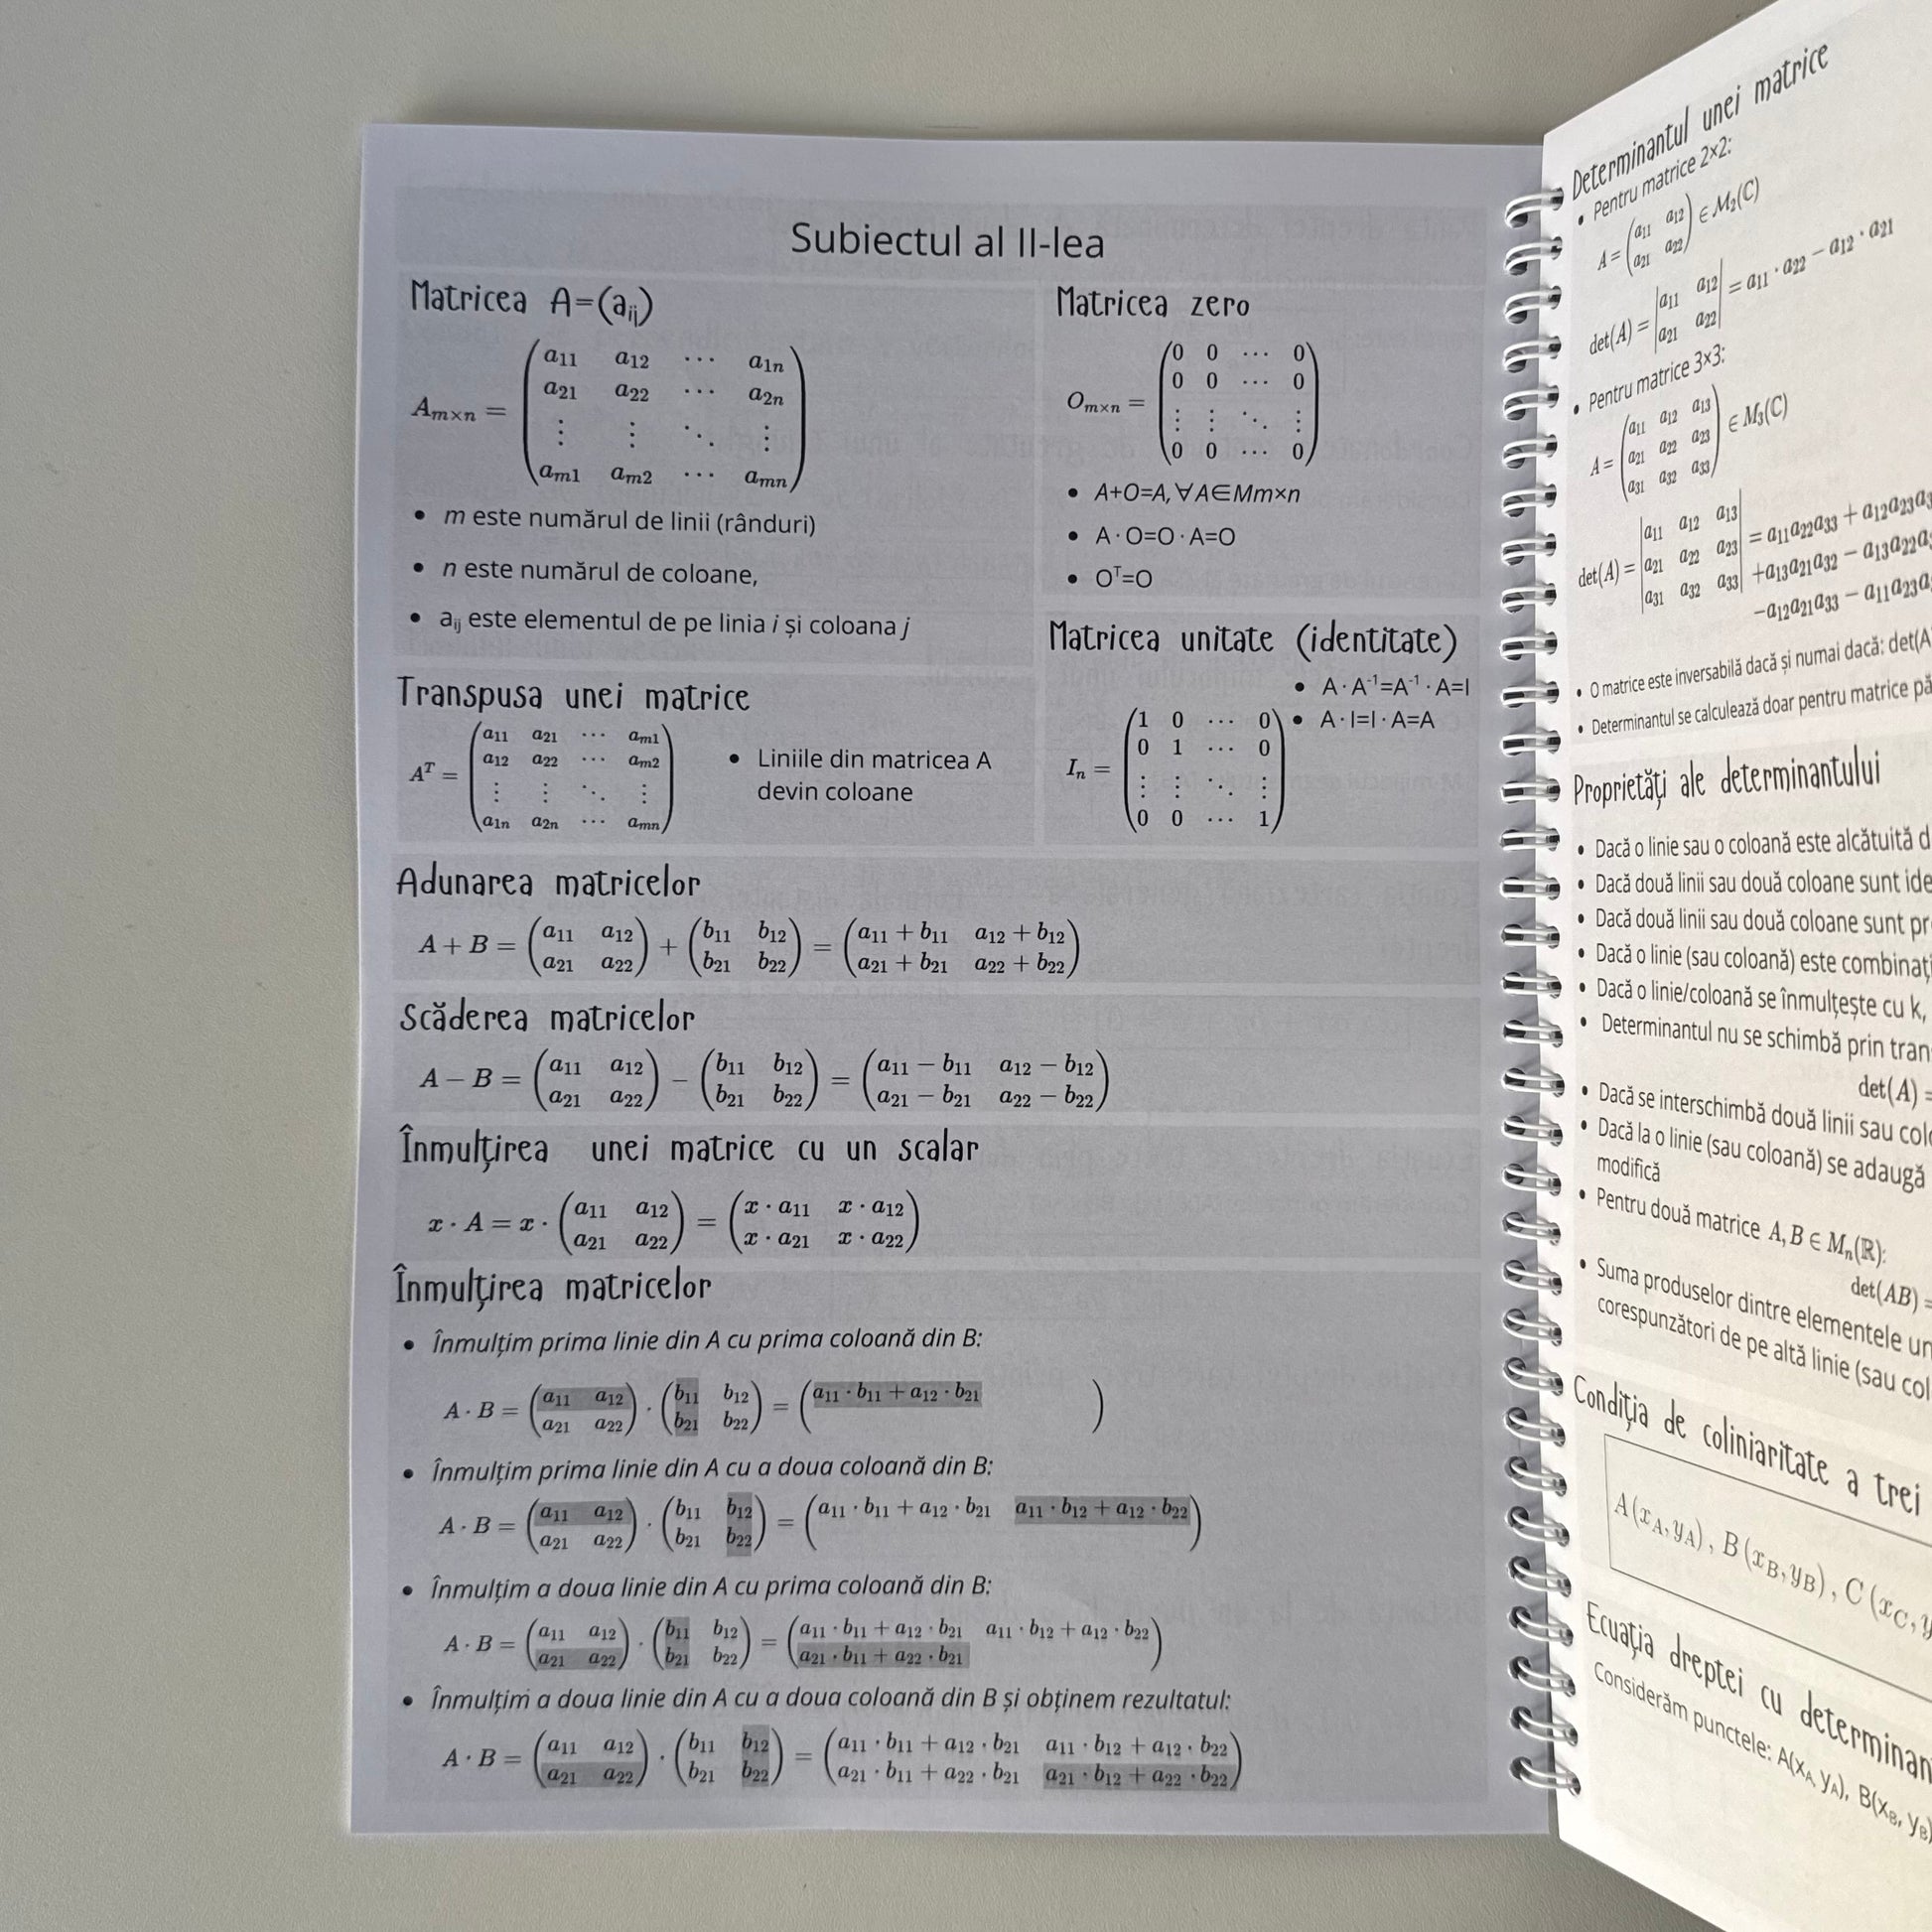 Subiectul al II-lea
Matricea A=(aᵢⱼ)
Aₘₓₙ = (a₁₁ a₁₂ ⋯ a₁ₙ
a₂₁ a₂₂ ⋯ a₂ₙ
⋮ ⋮ ⋱ ⋮
aₘ₁ aₘ₂ ⋯ aₘₙ)
• m este numărul de linii (rânduri)
• n este numărul de coloane,
• aᵢⱼ este elementul de pe linia i și coloana j
Matricea zero
Oₘₓₙ = (0 0 ⋯ 0
0 0 ⋯ 0
⋮ ⋮ ⋱ ⋮
0 0 ⋯ 0)
• A+O=A,∀A∈Mm×n
• A·O=O·A=O
• Oᵀ=O
Transpusa unei matrice
Aᵀ = (a₁₁ a₂₁ ⋯ aₘ₁
a₁₂ a₂₂ ⋯ aₘ₂
⋮ ⋮ ⋱ ⋮
a₁ₙ a₂ₙ ⋯ aₘₙ)
• Liniile din matricea A
devin coloane
Matricea unitate (identitate)
• A·A⁻¹=A⁻¹·A=I
• A·I=I·A=A
Iₙ = (1 0 ⋯ 0
0 1 ⋯ 0
⋮ ⋮ ⋱ ⋮
0 0 ⋯ 1)
Adunarea matricelor
A + B = (a₁₁ a₁₂ ) + (b₁₁ b₁₂) = (a₁₁ + b₁₁ a₁₂ + b₁₂
a₂₁ a₂₂) (b₂₁ b₂₂) a₂₁ + b₂₁ a₂₂ + b₂₂)
Scăderea matricelor
A − B = (a₁₁ a₁₂) − (b₁₁ b₁₂) = (a₁₁ − b₁₁ a₁₂ − b₁₂
a₂₁ a₂₂) (b₂₁ b₂₂) a₂₁ − b₂₁ a₂₂ − b₂₂)
Înmulțirea unei matrice cu un scalar
x · A = x · (a₁₁ a₁₂) = (x · a₁₁ x · a₁₂
a₂₁ a₂₂ x · a₂₁ x · a₂₂)
Înmulțirea matricelor
• Înmulțim prima linie din A cu prima coloană din B:
A · B = (a₁₁ a₁₂) · (b₁₁ b₁₂) = (a₁₁ · b₁₁ + a₁₂ · b₂₁ )
a₂₁ a₂₂ b₂₁ b₂₂
• Înmulțim prima linie din A cu a doua coloană din B:
A · B = (a₁₁ a₁₂) · (b₁₁ b₁₂) = (a₁₁ · b₁₁ + a₁₂ · b₂₁ a₁₁ · b₁₂ + a₁₂ · b₂₂)
a₂₁ a₂₂ b₂₁ b₂₂
• Înmulțim a doua linie din A cu prima coloană din B:
A · B = (a₁₁ a₁₂) · (b₁₁ b₁₂) = (a₁₁ · b₁₁ + a₁₂ · b₂₁ a₁₁ · b₁₂ + a₁₂ · b₂₂)
a₂₁ a₂₂ b₂₁ b₂₂ a₂₁ · b₁₁ + a₂₂ · b₂₁
• Înmulțim a doua linie din A cu a doua coloană din B și obținem rezultatul:
A · B = (a₁₁ a₁₂) · (b₁₁ b₁₂) = (a₁₁ · b₁₁ + a₁₂ · b₂₁ a₁₁ · b₁₂ + a₁₂ · b₂₂)
a₂₁ a₂₂ b₂₁ b₂₂ a₂₁ · b₁₁ + a₂₂ · b₂₁ a₂₁ · b₁₂ + a₂₂ · b₂₂
Determinantul unei matrice
• Pentru matrice 2×2:
A = (a₁₁ a₁₂
a₂₁ a₂₂) ∈ M₂(C)
det(A) = |a₁₁ a₁₂| = a₁₁ · a₂₂ − a₁₂ · a₂₁
a₂₁ a₂₂
• Pentru matrice 3×3:
A = (a₁₁ a₁₂ a₁₃
a₂₁ a₂₂ a₂₃
a₃₁ a₃₂ a₃₃) ∈ M₃(C)
det(A) = |a₁₁ a₁₂ a₁₃| = a₁₁a₂₂a₃₃ + a₁₂a₂₃
a₂₁ a₂₂ a₂₃ +a₁₃a₂₁a₃₂ − a₁₃a₂₂
a₃₁ a₃₂ a₃₃ −a₁₂a₂₁a₃₃ − a₁₁a₂₃
• O matrice este inversabilă dacă și numai dacă: det(A
• Determinantul se calculează doar pentru matrice pă
Proprietăți ale determinantului
• Dacă o linie sau o coloană este alcătuită d
• Dacă două linii sau două coloane sunt ide
• Dacă două linii sau două coloane sunt pr
• Dacă o linie (sau coloană) este combinați
• Dacă o linie/coloană se înmulțește cu k,
• Determinantul nu se schimbă prin tran
det(A) =
• Dacă se interschimbă două linii sau col
• Dacă la o linie (sau coloană) se adaugă
modifică
• Pentru două matrice A, B ∈ Mₙ(ℝ):
det(AB) =
• Suma produselor dintre elementele un
corespunzători de pe altă linie (sau col
Condiția de coliniaritate a trei
A(x_A, y_A), B(x_B, y_B), C(x_C, y
Ecuația dreptei cu determinan
Considerăm punctele: A(x_A, y_A), B(x_B, y_B)